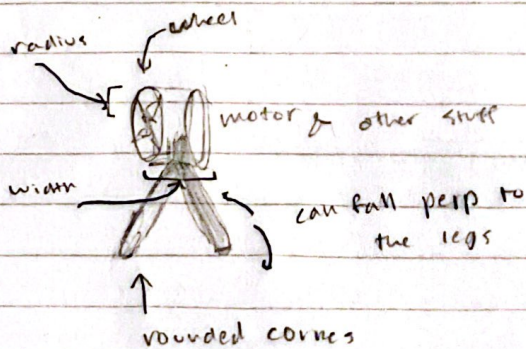 wheel
radius
motor & other stuff
width
can fall perp to
the legs
rounded cornes